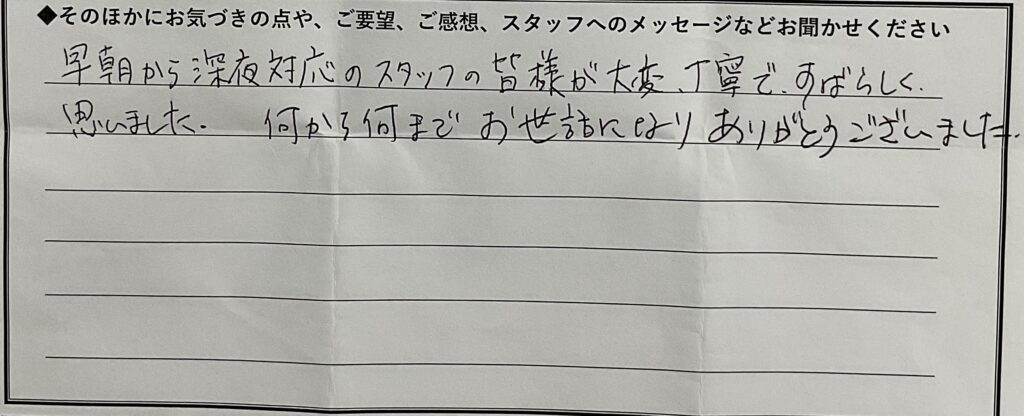 ◆そのほかにお気づきの点や、ご要望、ご感想、スタッフへのメッセージなどお聞かせください
早朝から深夜対応のスタッフの皆様が大変、丁寧で、すばらしく、
思いました。 何から何まで お世話になり ありがとうございました。